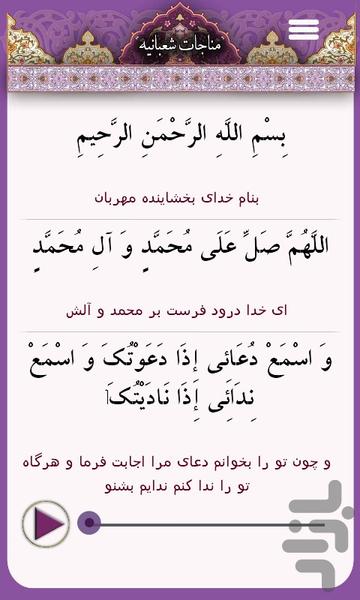 مناجات شعبانیه
بِسْمِ اللَّهِ الرَّحْمَنِ الرَّحِیمِ
بنام خدای بخشاینده مهربان
اللَّهُمَّ صَلِّ عَلَى مُحَمَّدٍ وَ آلِ مُحَمَّدٍ
ای خدا درود فرست بر محمد و آلش
وَ اسْمَعْ دُعَائِی إِذَا دَعَوْتُکَ وَ اسْمَعْ
نِدَائِی إِذَا نَادَیْتُکَ
و چون تو را بخوانم دعای مرا اجابت فرما و هرگاه
تو را ندا کنم ندایم بشنو
بازار